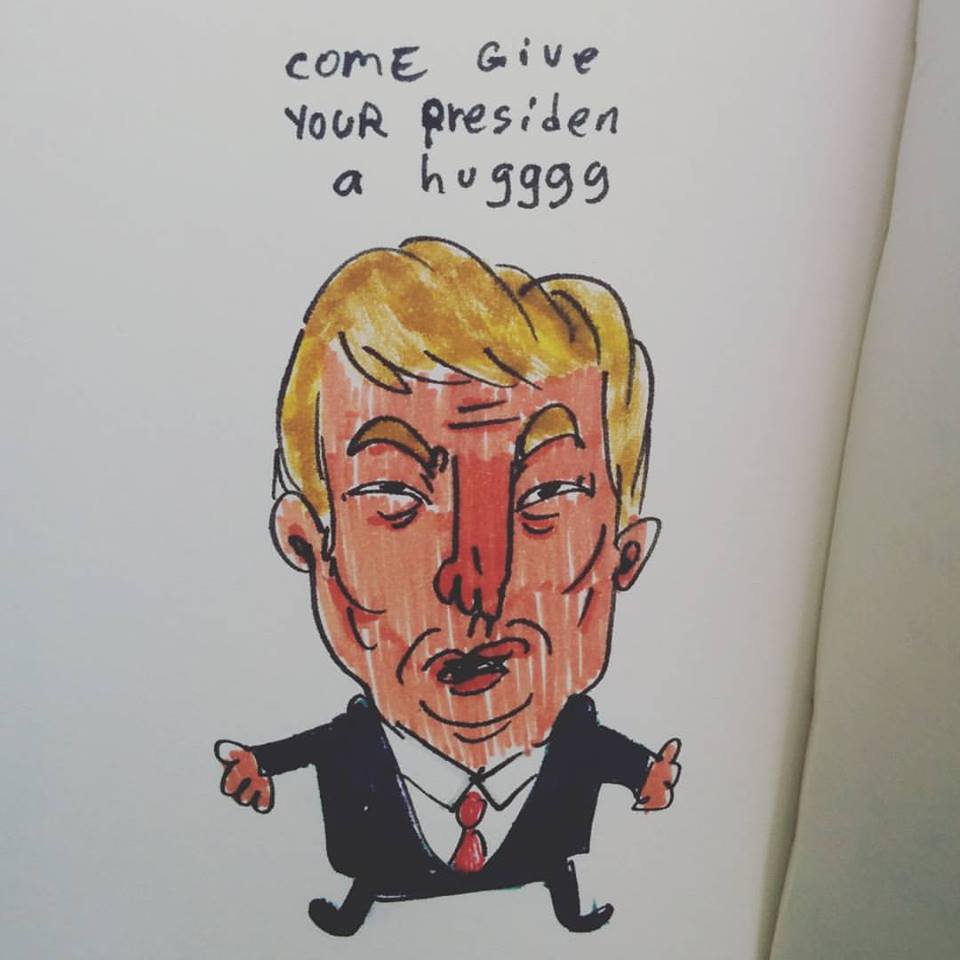 COME GivE
YOUR Presiden
a hugggg